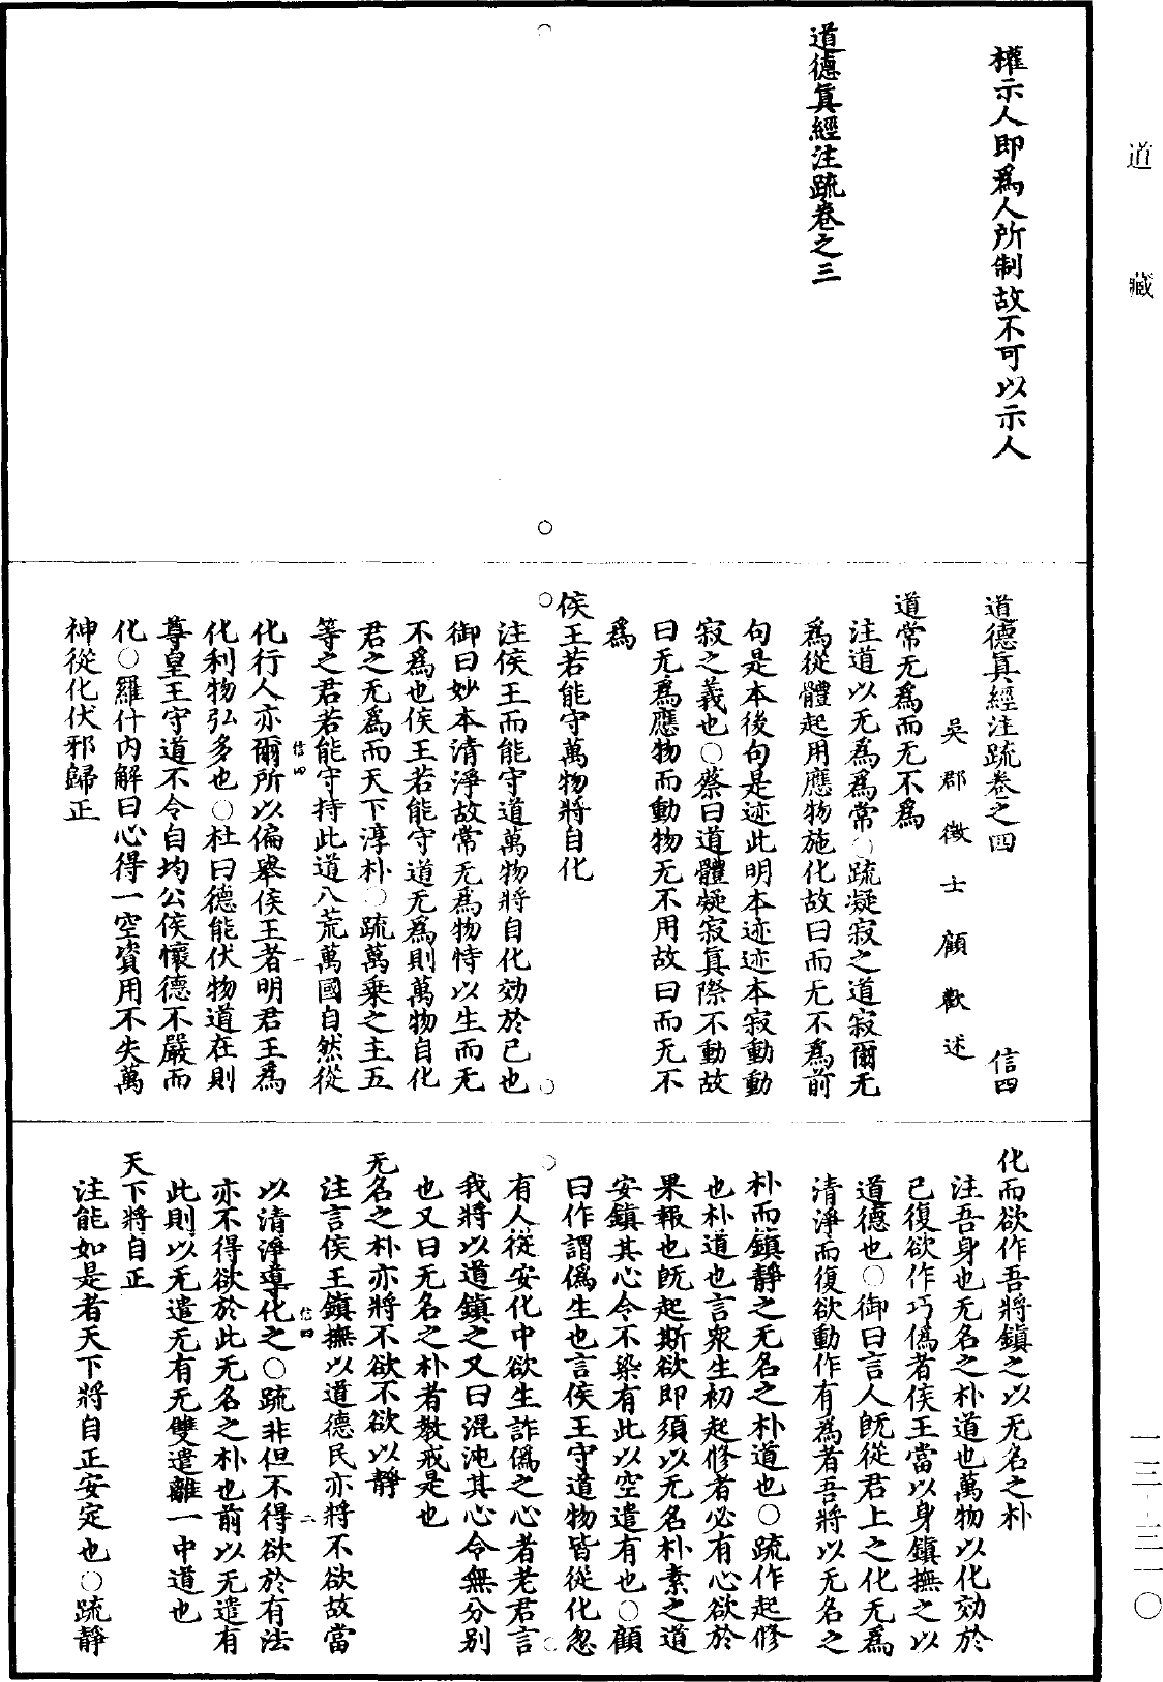 道藏
一三-三一〇
權示人即爲人所制故不可以示人
道德眞經注䟽卷之三
道德眞經注䟽卷之四 信四
吳郡徵士顧歡述
道常无爲而无不爲
注道以无爲爲常○䟽凝寂之道寂爾无
爲從體起用應物施化故曰而无不爲前
句是本後句是迹此明本迹迹本寂動動
寂之義也○蔡曰道體凝寂眞際不動故
曰无爲應物而動物无不用故曰而无不
爲
侯王若能守萬物將自化
注侯王而能守道萬物將自化効於己也
御曰妙本清淨故常无爲物恃以生而无
不爲也侯王若能守道无爲則萬物自化
君之无爲而天下淳朴○䟽萬乗之主五
等之君若能守持此道八荒萬國自然從
信四 一
化行人亦爾所以偏舉侯王者明君王爲
化利物弘多也○杜曰德能伏物道在則
尊皇王守道不令自均公侯懷德不嚴而
化○羅什内解曰心得一空資用不失萬
神從化伏邪歸正
化而欲作吾將鎮之以无名之朴
注吾身也无名之朴道也萬物以化効於
己復欲作巧僞者侯王當以身鎮撫之以
道德也○御曰言人旣從君上之化无爲
清淨而復欲動作有爲者吾將以无名之
朴而鎮靜之无名之朴道也○䟽作起修
也朴道也言衆生初起修者必有心欲於
果報也旣起斯欲即須以无名朴素之道
安鎮其心令不染有此以空遣有也○顧
曰作謂僞生也言侯王守道物皆從化忽
有人從安化中欲生詐僞之心者老君言
我將以道鎮之又曰混沌其心令無分别
也又曰无名之朴者教戒是也
无名之朴亦將不欲不欲以靜
注言侯王鎮撫以道德民亦將不欲故當
信四 二
以清淨導化之○䟽非但不得欲於有法
亦不得欲於此无名之朴也前以无遣有
此則以无遣无有无雙遣離一中道也
天下將自正
注能如是者天下將自正安定也○䟽靜